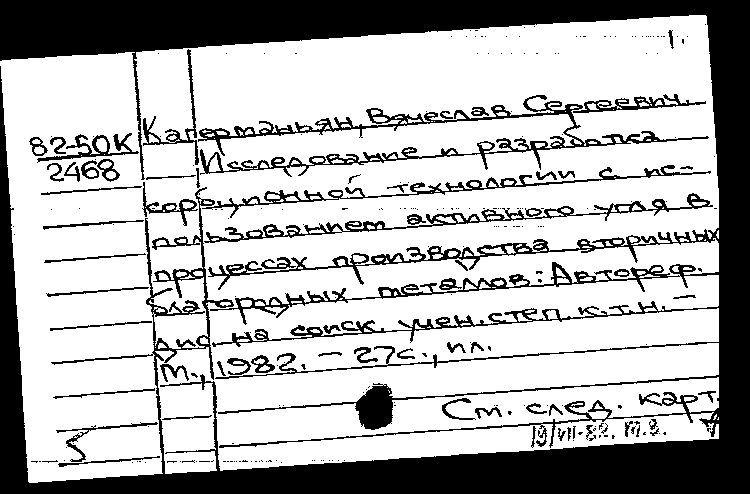 1.
82-50К
2468
Каперманьян, Вячеслав Сергеевич.
Исследование и разработка
сорбционной технологии с ис-
пользованием активного угля в
процессах производства вторичных
благородных металлов: Автореф.
дис. на соиск. учен. степ. к.т.н. -
М., 1982. - 27с., ил.
См. след. карт.
19/VII-82. т.з.